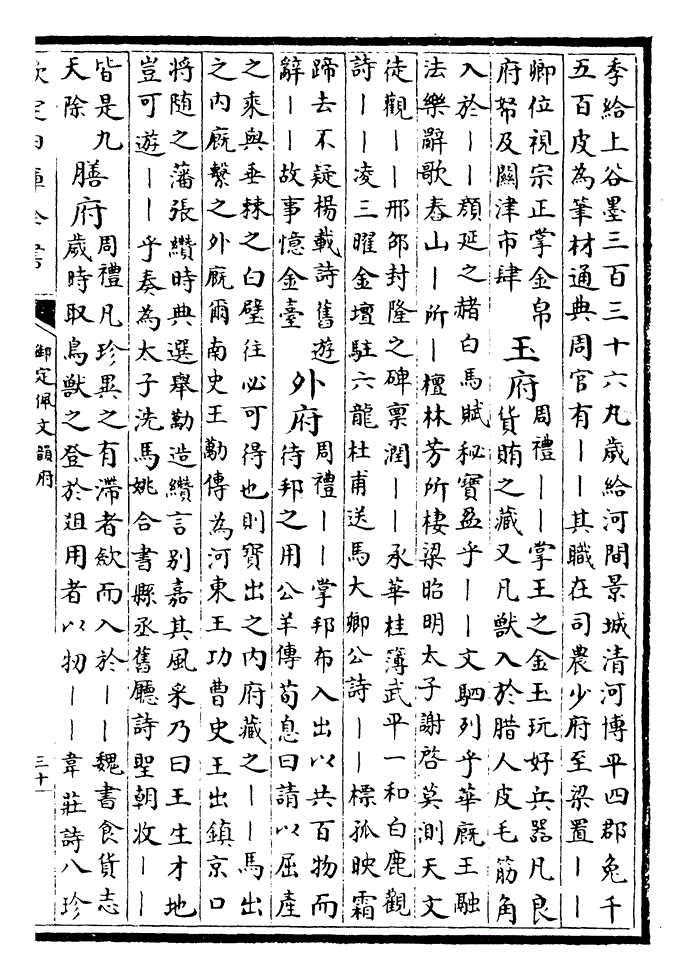 季給上谷墨三百三十六丸歲給河間景城清河博平四郡兔千
五百皮為筆材通典周官有丨丨其職在司農少府至梁置丨丨
卿位視宗正掌金帛
府帑及關津市肆
玉府
周禮丨丨掌王之金玉玩好兵器凡良
貨賄之藏又凡獸入於腊人皮毛筋角
入於丨丨顔延之赭白馬賦秘寶盈乎丨丨文駟列乎華廐王融
法樂辭歌舂山丨所丨檀林芳所棲梁昭明太子謝啓莫測天文
徒觀丨丨邢邵封隆之碑禀潤丨丨承華桂簿武平一和白鹿觀
詩丨丨凌三曜金壇駐六龍杜甫送馬大卿公詩丨丨標孤映霜
蹄去不疑楊載詩舊遊
辭丨丨故事憶金臺
外府
周禮丨丨掌邦布入出以共百物而
待邦之用公羊傳荀息曰請以屈產
之乘與垂棘之白璧往必可得也則寶出之內府藏之丨丨馬出
之內廐繫之外廐爾南史王勱傳為河東王功曹史王出鎮京口
將随之藩張纘時典選舉勤造纘言别嘉其風采乃曰王生才地
豈可遊丨丨乎奏為太子洗馬姚合書縣丞舊廳詩聖朝收丨丨
皆是九
天除
膳府
周禮凡珍異之有滯者歛而入於丨丨魏書食貨志
歲時取鳥獸之登於俎用者以牣丨丨韋莊詩八珍
欽定四庫全書
御定佩文韻府
三十一